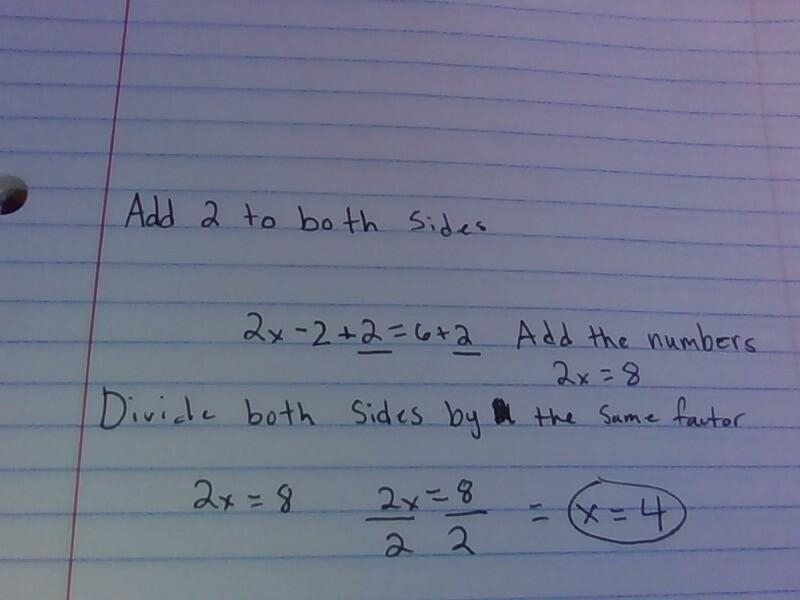 Add 2 to both sides
2x - 2 + 2 = 6 + 2 Add the numbers
2x = 8
Divide both sides by the same factor
2x = 8 2x/2 = 8/2 = x = 4